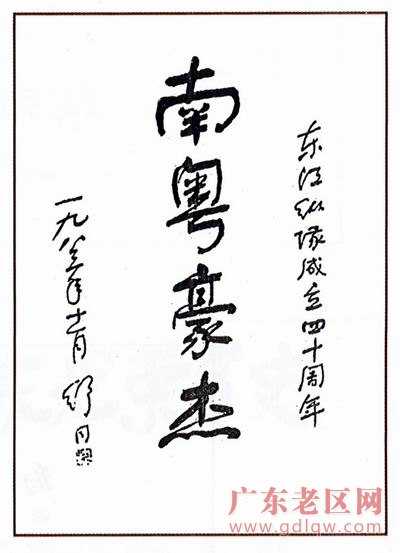 东江纵队成立四十周年
南粤豪杰
一九八三年十二月 舒同
广东老区网
www.gdlqw.com